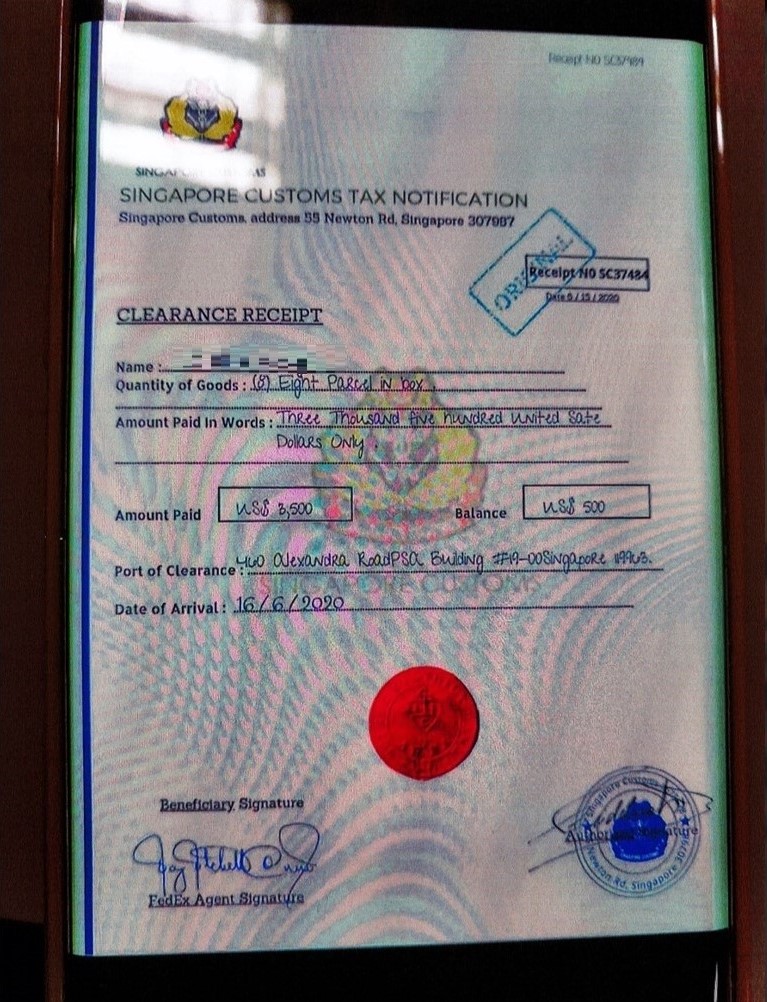 Receipt NO SC37484
SINGAPORE CUSTOMS TAX NOTIFICATION
Singapore Customs, address 55 Newton Rd, Singapore 307987
ORIGINAL
Receipt NO SC37484
Date 6 / 15 / 2020
CLEARANCE RECEIPT
Name :
Quantity of Goods : (8) Eight Parcel in box .
Amount Paid In Words : Three Thousand five hundred united Sate
Dollars Only .
Amount Paid US$ 3,500 Balance US$ 500
Port of Clearance : 460 Alexandra RoadPSA Building #19-00Singapore 119963.
Date of Arrival : 16/6/2020
Beneficiary Signature
Authorized Signature
Singapore Customs
Newton Rd, Singapore 3079
FedEx Agent Signature